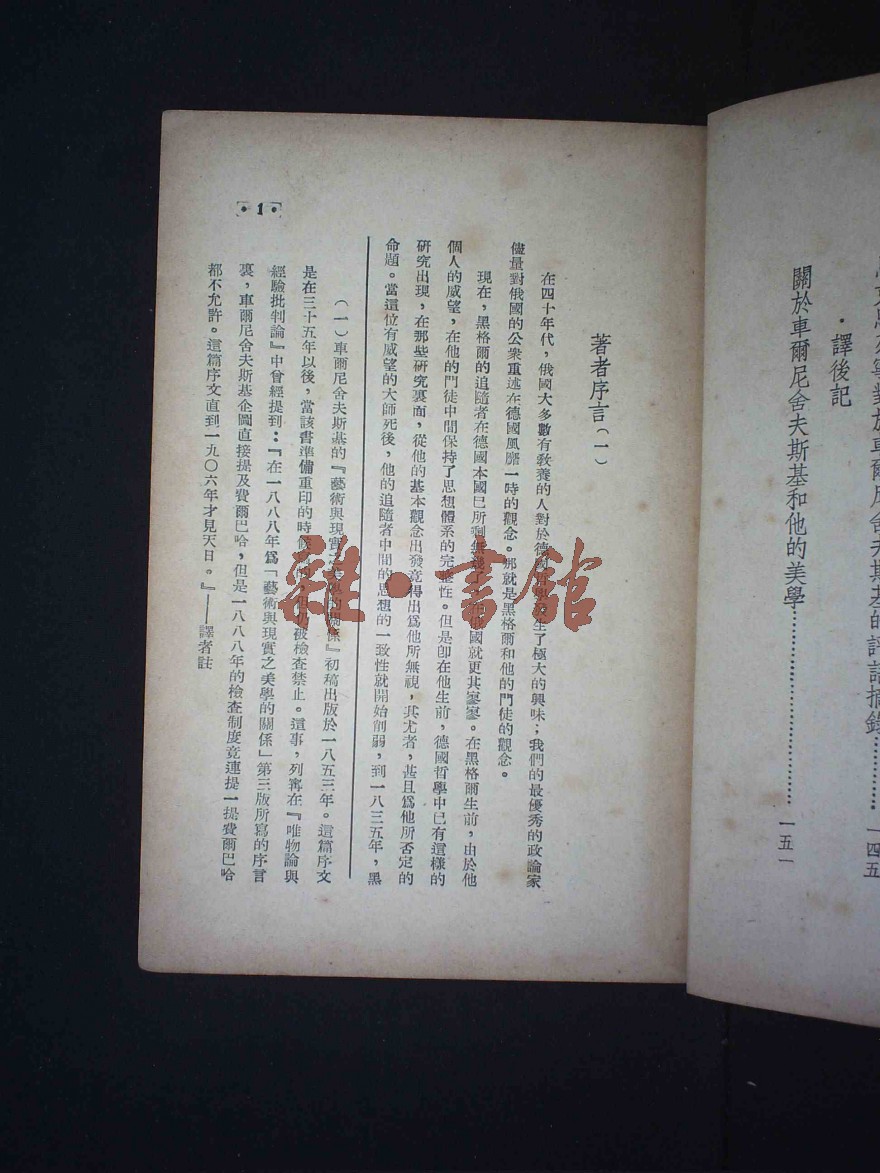 馬克思及等對於車爾尼舍夫斯基的評語摘錄……………一四五
・譯後記
關於車爾尼舍夫斯基和他的美學……………………………一五一
著者序言(一)
在四十年代，俄國大多數有教養的人對於德國哲學發生了極大的興味；我們的最優秀的政論家
儘量對俄國的公衆重述在德國風靡一時的觀念。那就是黑格爾和他的門徒的觀念。
現在，黑格爾的追隨者在德國本國已所剩無幾了，在俄國就更其寥寥。在黑格爾生前，由於他
個人的威望，在他的門徒中間保持了思想體系的完整性。但是卽在他生前，德國哲學中已有這樣的
研究出現，在那些研究裏面，從他的基本觀念出發竟得出爲他所無視，其尤者，甚且爲他所否定的
命題。當這位有威望的大師死後，他的追隨者中間的思想的一致性就開始削弱，到一八三五年，黑
(一)車爾尼舍夫斯基的『藝術與現實之美學的關係』初稿出版於一八五三年。這篇序文
是在三十五年以後，當該書準備重印的時候寫的，但仍被檢查禁止。這事，列寧在『唯物論與
經驗批判論』中曾經提到：『在一八八八年爲「藝術與現實之美學的關係」第三版所寫的序言
裏，車爾尼舍夫斯基企圖直接提及費爾巴哈，但是一八八八年的檢查制度竟連提一提費爾巴哈
都不允許。這篇序文直到一九〇六年才見天日。』——譯者註
[・1・]
雜・書館